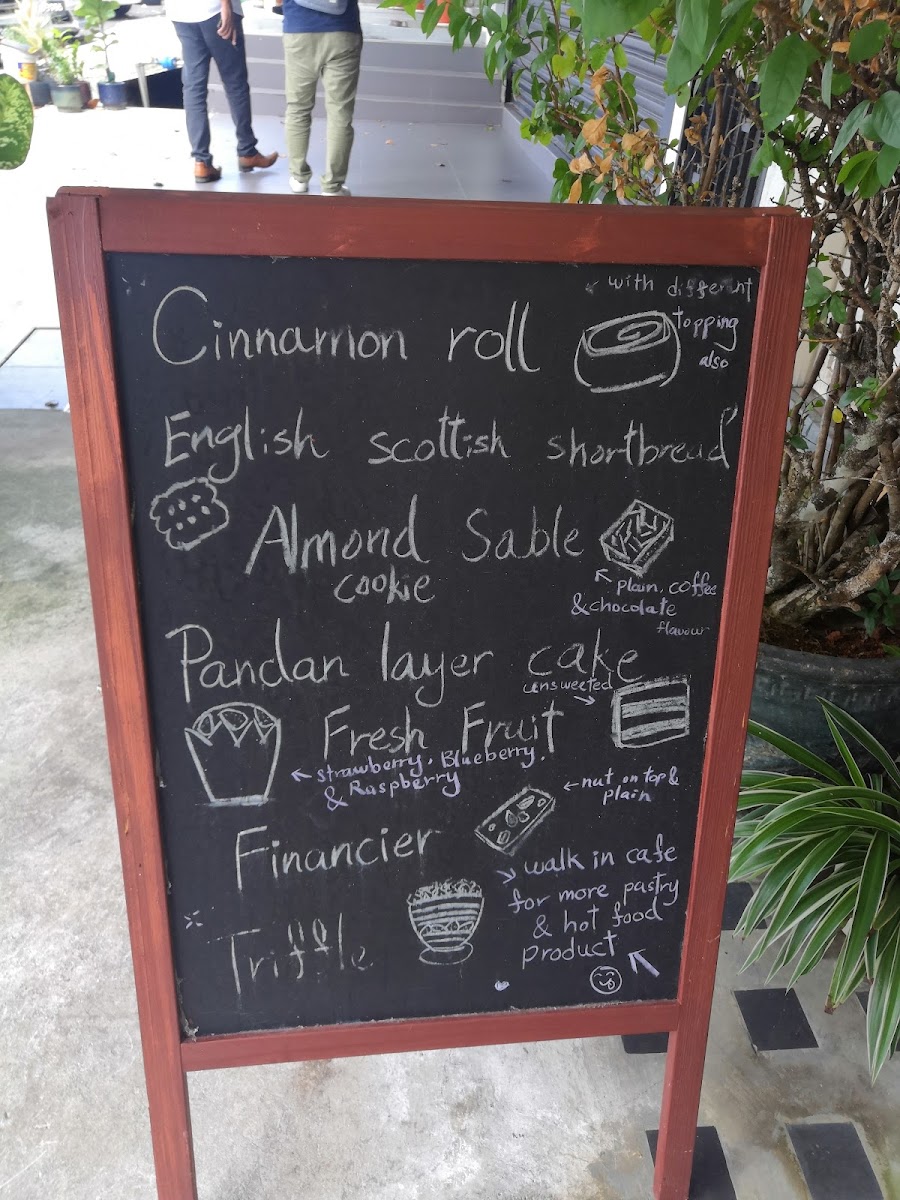 with different
Cinnamon roll
topping
also
English scottish shortbread
Almond Sable
cookie
plain, coffee
& chocolate
flavour
Pandan layer cake
unsweeted
Fresh Fruit
strawberry, Blueberry,
& Raspberry
nut on top &
plain
Financier
walk in cafe
for more pastry
& hot food
product
Triffle